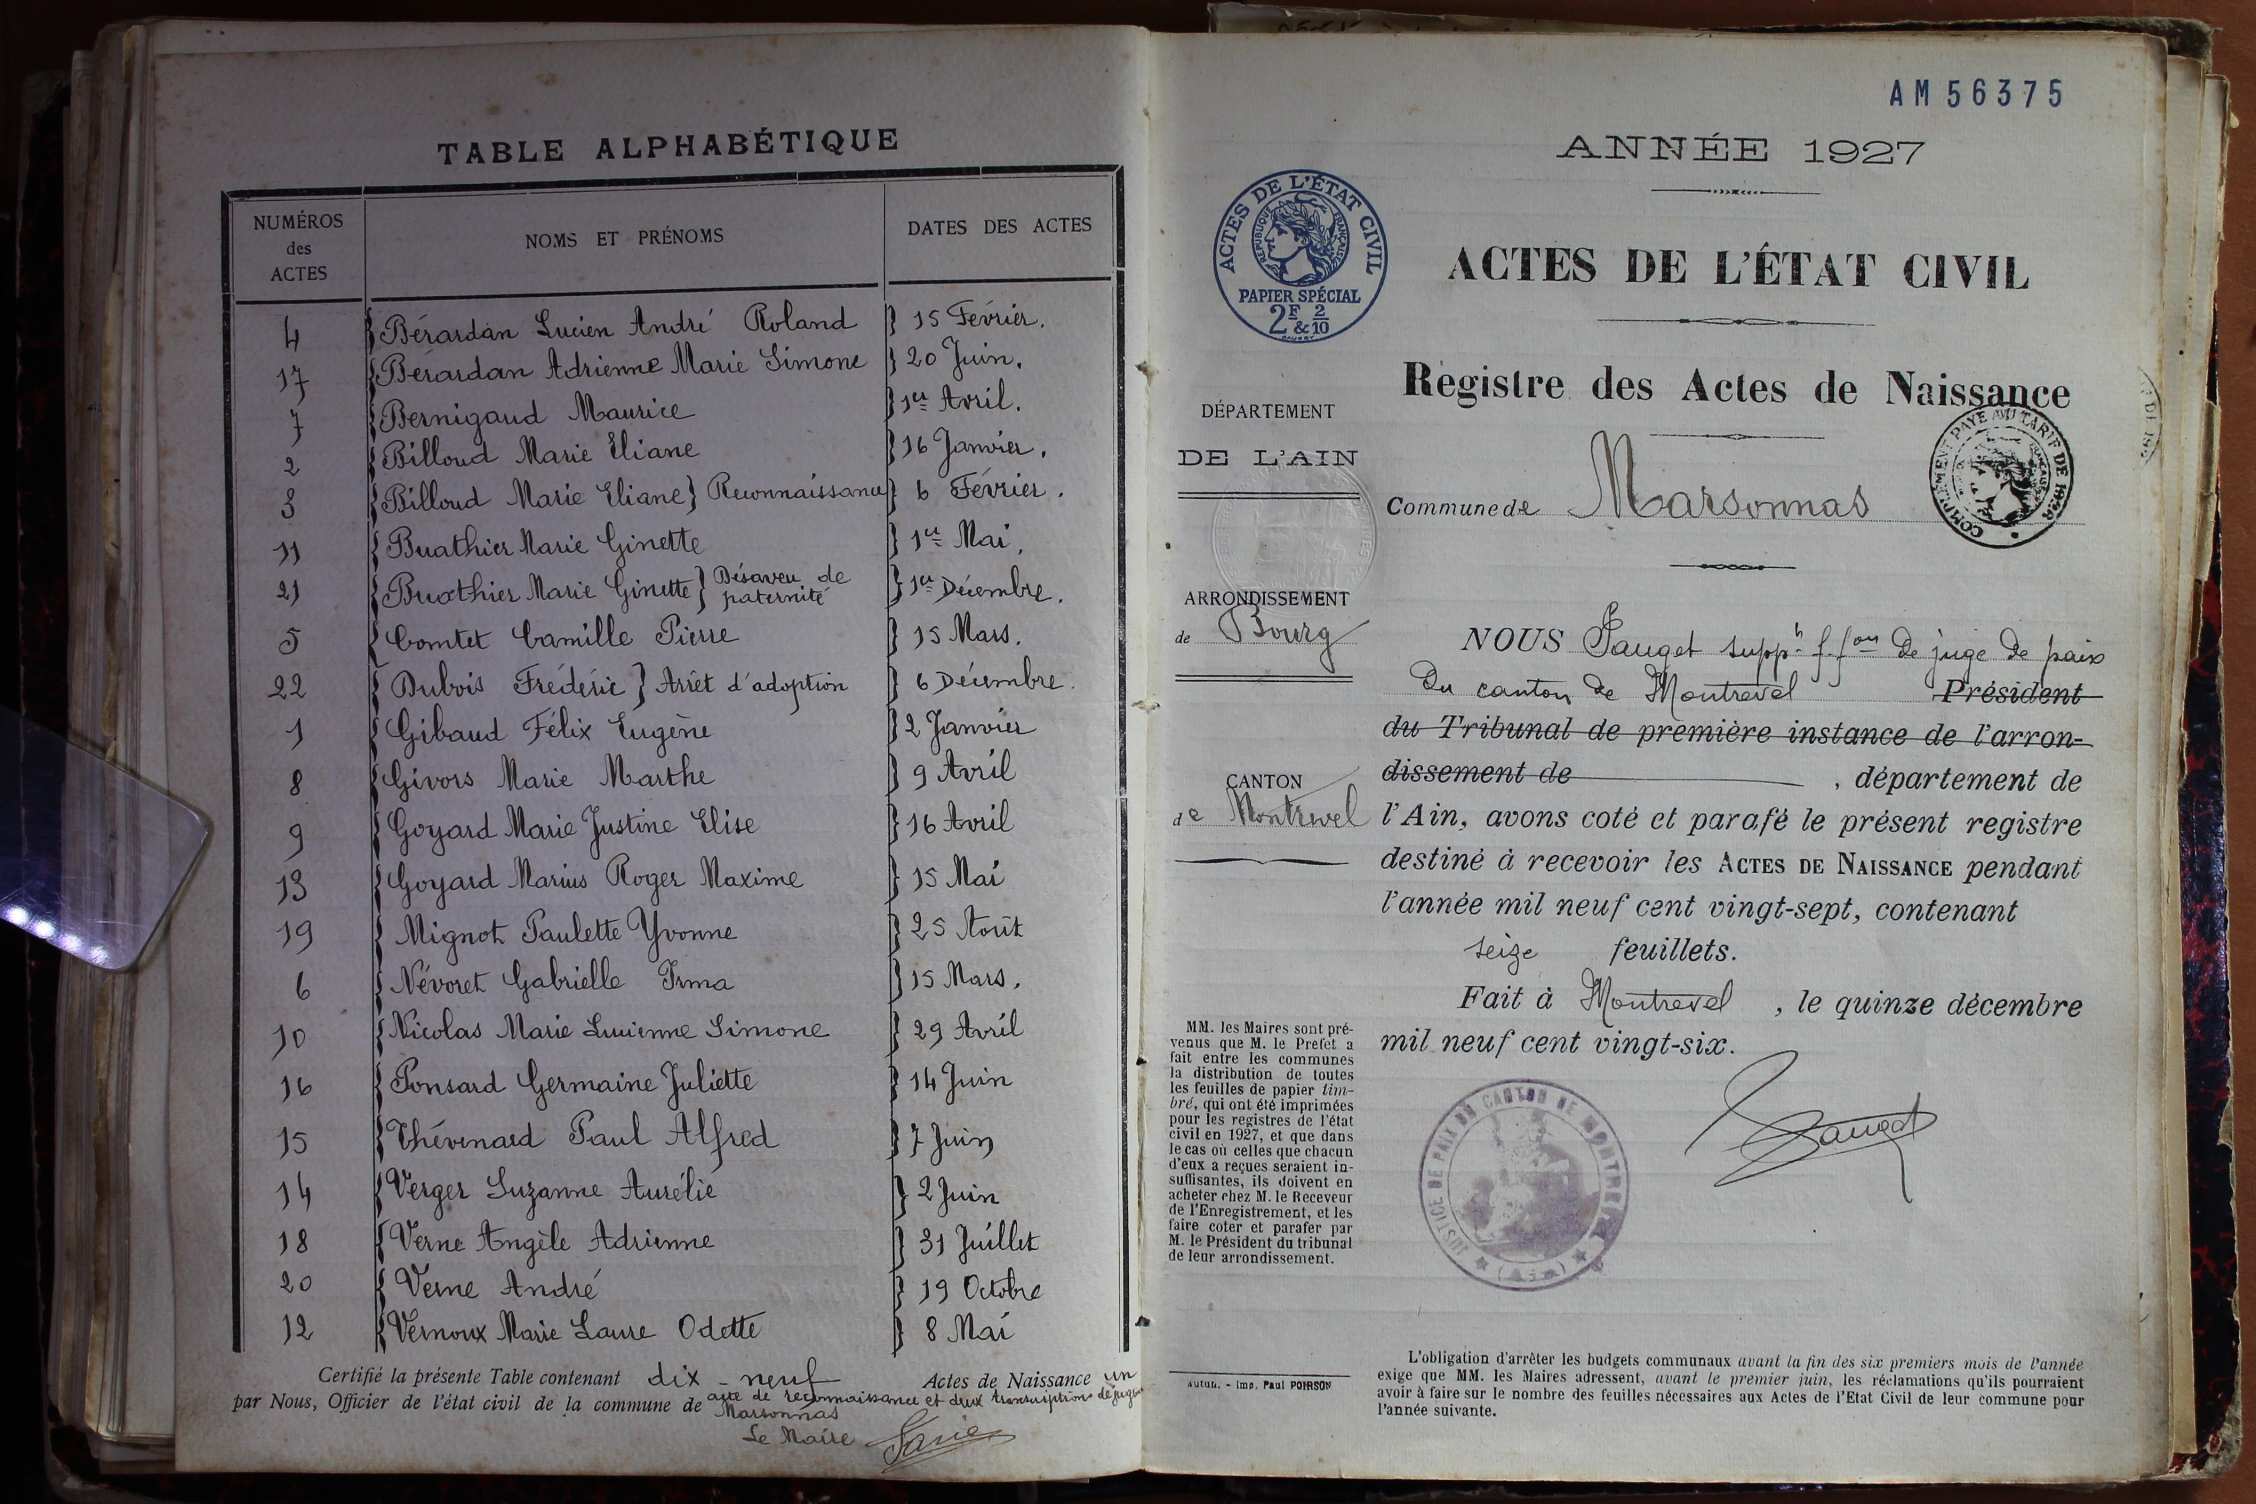 TABLE ALPHABÉTIQUE
NUMÉROS des ACTES
NOMS ET PRÉNOMS
DATES DES ACTES
4 Bérardan Lucien André Roland 15 Février.
17 Bérardan Adrienne Marie Simone 20 Juin.
7 Bernigaud Maurice 1er Avril.
2 Billoud Marie Eliane 16 Janvier.
3 Billoud Marie Eliane } Reconnaissance 6 Février.
11 Buathier Marie Ginette 1er Mai.
21 Buathier Marie Ginette } Désaveu de paternité 1er Décembre.
5 Comtet Camille Pierre 15 Mars.
22 Dubois Frédéric } Arrêt d'adoption 6 Décembre.
1 Gibaud Félix Eugène 2 Janvier
8 Givors Marie Marthe 9 Avril
9 Goyard Marie Justine Elise 16 Avril
13 Goyard Marius Roger Maxime 15 Mai
19 Mignot Paulette Yvonne 25 Août
6 Névoret Gabrielle Irma 15 Mars.
10 Nicolas Marie Lucienne Simone 29 Avril
16 Ponsard Germaine Juliette 14 Juin
15 Thévenard Paul Alfred 7 Juin
14 Verger Suzanne Aurélie 2 Juin
18 Verne Angèle Adrienne 31 Juillet
20 Verne André 19 Octobre
12 Vernoux Marie Laure Odette 8 Mai
Certifié la présente Table contenant dix-neuf Actes de Naissance un
acte de reconnaissance et deux transcriptions de jug
par Nous, Officier de l'état civil de la commune de Marsonnas
Le Maire
AM 56375
ANNÉE 1927
ACTES DE L'ÉTAT CIVIL
RÉPUBLIQUE FRANÇAISE
PAPIER SPÉCIAL
2F & 2/10
ACTES DE L'ÉTAT CIVIL
Registre des Actes de Naissance
COMPLÉMENT PAYÉ AU TARIF DE
DÉPARTEMENT
DE L'AIN
Commune de Marsonnas
ARRONDISSEMENT
de Bourg
CANTON
de Montrevel
NOUS Pauget suppt f. fon de juge de paix
Du canton de Montrevel Président
du Tribunal de première instance de l'arron-
dissement de , département de
l'Ain, avons coté et parafé le présent registre
destiné à recevoir les ACTES DE NAISSANCE pendant
l'année mil neuf cent vingt-sept, contenant
seize feuillets.
Fait à Montrevel , le quinze décembre
mil neuf cent vingt-six.
Pauget
JUSTICE DE PAIX DU CANTON DE MONTREVEL
MM. les Maires sont pré-
venus que M. le Préfet a
fait entre les communes
la distribution de toutes
les feuilles de papier tim-
bré, qui ont été imprimées
pour les registres de l'état
civil en 1927, et que dans
le cas où celles que chacun
d'eux a reçues seraient in-
suffisantes, ils doivent en
acheter chez M. le Receveur
de l'Enregistrement, et les
faire coter et parafer par
M. le Président du tribunal
de leur arrondissement.
Autun. - Imp. Paul POIRSON
L'obligation d'arrêter les budgets communaux avant la fin des six premiers mois de l'année
exige que MM. les Maires adressent, avant le premier juin, les réclamations qu'ils pourraient
avoir à faire sur le nombre des feuilles nécessaires aux Actes de l'Etat Civil de leur commune pour
l'année suivante.